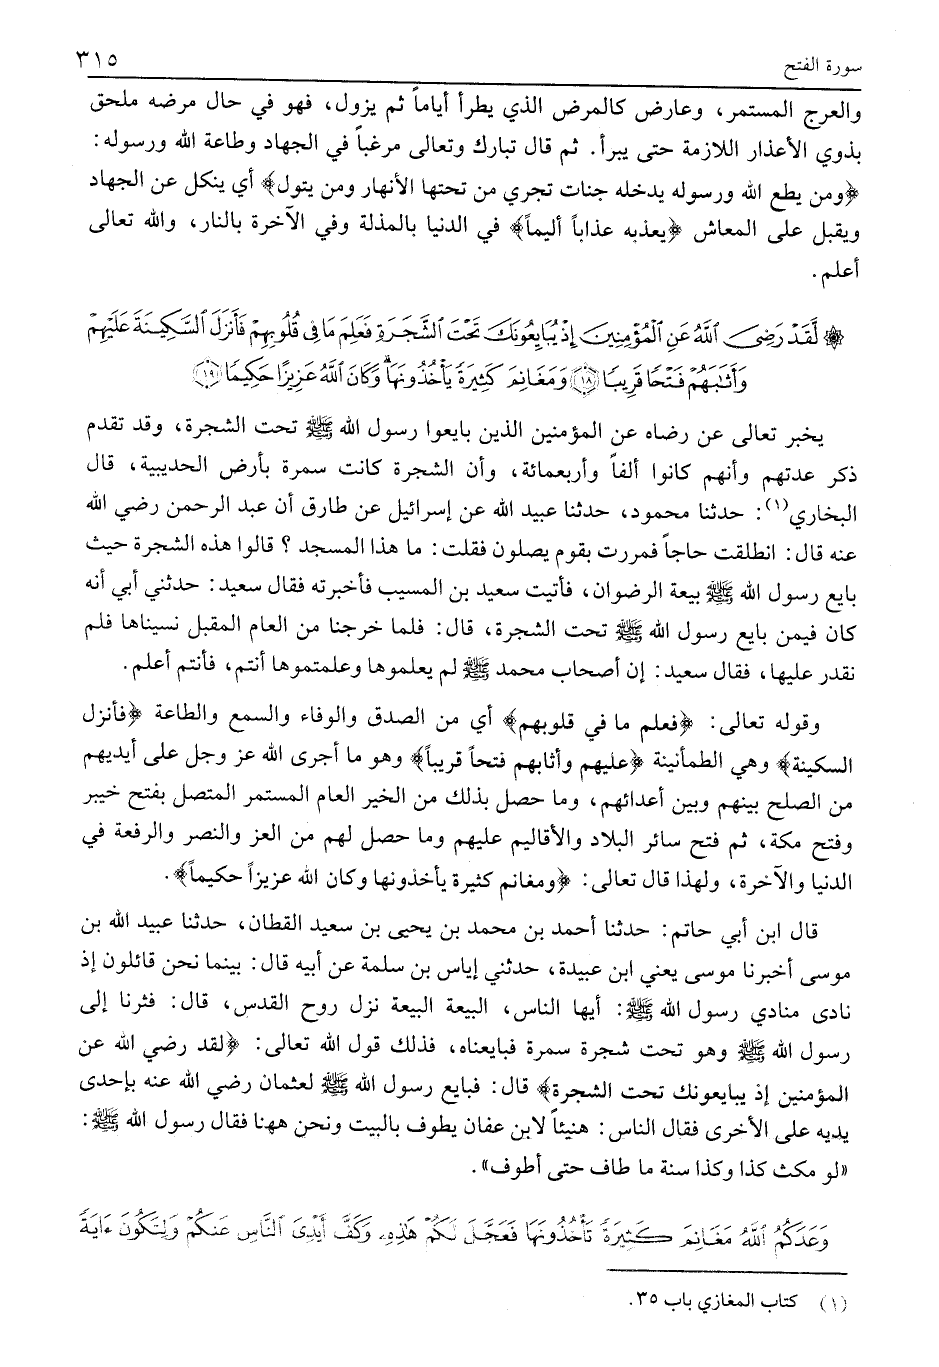 سورة الفتح ٣١٥
والعرج المستمر، وعارض كالمرض الذي يطرأ أياماً ثم يزول، فهو في حال مرضه ملحق
بذوي الأعذار اللازمة حتى يبرأ. ثم قال تبارك وتعالى مرغباً في الجهاد وطاعة الله ورسوله:
﴿ومن يطع الله ورسوله يدخله جنات تجري من تحتها الأنهار ومن يتول﴾ أي ينكل عن الجهاد
ويقبل على المعاش ﴿يعذبه عذاباً أليماً﴾ في الدنيا بالمذلة وفي الآخرة بالنار، والله تعالى
أعلم.
۞ لَّقَدْ رَضِيَ اللَّهُ عَنِ الْمُؤْمِنِينَ إِذْ يُبَايِعُونَكَ تَحْتَ الشَّجَرَةِ فَعَلِمَ مَا فِي قُلُوبِهِمْ فَأَنزَلَ السَّكِينَةَ عَلَيْهِمْ
وَأَثَابَهُمْ فَتْحًا قَرِيبًا ﴿١٨﴾ وَمَغَانِمَ كَثِيرَةً يَأْخُذُونَهَا ۗ وَكَانَ اللَّهُ عَزِيزًا حَكِيمًا ﴿١٩﴾
يخبر تعالى عن رضاه عن المؤمنين الذين بايعوا رسول الله ﷺ تحت الشجرة، وقد تقدم
ذكر عدتهم وأنهم كانوا ألفاً وأربعمائة، وأن الشجرة كانت سمرة بأرض الحديبية، قال
البخاري(١): حدثنا محمود، حدثنا عبيد الله عن إسرائيل عن طارق أن عبد الرحمن رضي الله
عنه قال: انطلقت حاجاً فمررت بقوم يصلون فقلت: ما هذا المسجد؟ قالوا هذه الشجرة حيث
بايع رسول الله ﷺ بيعة الرضوان، فأتيت سعيد بن المسيب فأخبرته فقال سعيد: حدثني أبي أنه
كان فيمن بايع رسول الله ﷺ تحت الشجرة، قال: فلما خرجنا من العام المقبل نسيناها فلم
نقدر عليها، فقال سعيد: إن أصحاب محمد ﷺ لم يعلموها وعلمتموها أنتم، فأنتم أعلم.
وقوله تعالى: ﴿فعلم ما في قلوبهم﴾ أي من الصدق والوفاء والسمع والطاعة ﴿فأنزل
السكينة﴾ وهي الطمأنينة ﴿عليهم وأثابهم فتحاً قريباً﴾ وهو ما أجرى الله عز وجل على أيديهم
من الصلح بينهم وبين أعدائهم، وما حصل بذلك من الخير العام المستمر المتصل بفتح خيبر
وفتح مكة، ثم فتح سائر البلاد والأقاليم عليهم وما حصل لهم من العز والنصر والرفعة في
الدنيا والآخرة، ولهذا قال تعالى: ﴿ومغانم كثيرة يأخذونها وكان الله عزيزاً حكيماً﴾.
قال ابن أبي حاتم: حدثنا أحمد بن محمد بن يحيى بن سعيد القطان، حدثنا عبيد الله بن
موسى أخبرنا موسى يعني ابن عبيدة، حدثني إياس بن سلمة عن أبيه قال: بينما نحن قائلون إذ
نادى منادي رسول الله ﷺ: أيها الناس، البيعة البيعة نزل روح القدس، قال: فثرنا إلى
رسول الله ﷺ وهو تحت شجرة سمرة فبايعناه، فذلك قول الله تعالى: ﴿لقد رضي الله عن
المؤمنين إذ يبايعونك تحت الشجرة﴾ قال: فبايع رسول الله ﷺ لعثمان رضي الله عنه بإحدى
يديه على الأخرى فقال الناس: هنيئاً لابن عفان يطوف بالبيت ونحن ههنا فقال رسول الله ﷺ:
«لو مكث كذا وكذا سنة ما طاف حتى أطوف».
وَعَدَكُمُ اللَّهُ مَغَانِمَ كَثِيرَةً تَأْخُذُونَهَا فَعَجَّلَ لَكُمْ هَٰذِهِ وَكَفَّ أَيْدِيَ النَّاسِ عَنكُمْ وَلِتَكُونَ ءَايَةً
(١) كتاب المغازي باب ٣٥.